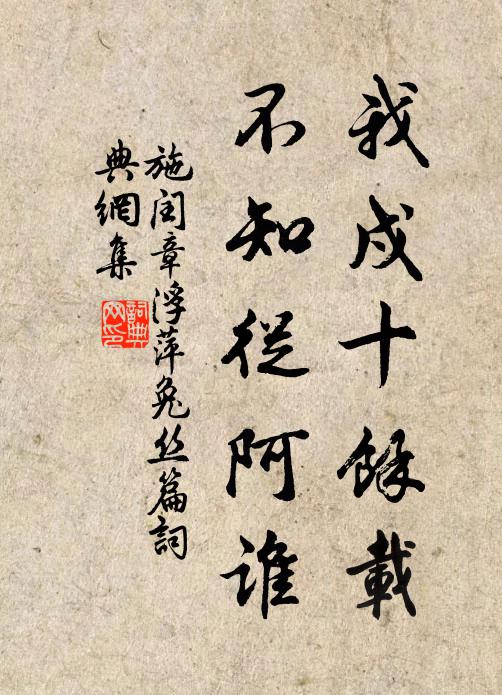 我戍十餘載
不知從阿誰
施闰章浮萍兔丝篇詞
典網集
詞典網印